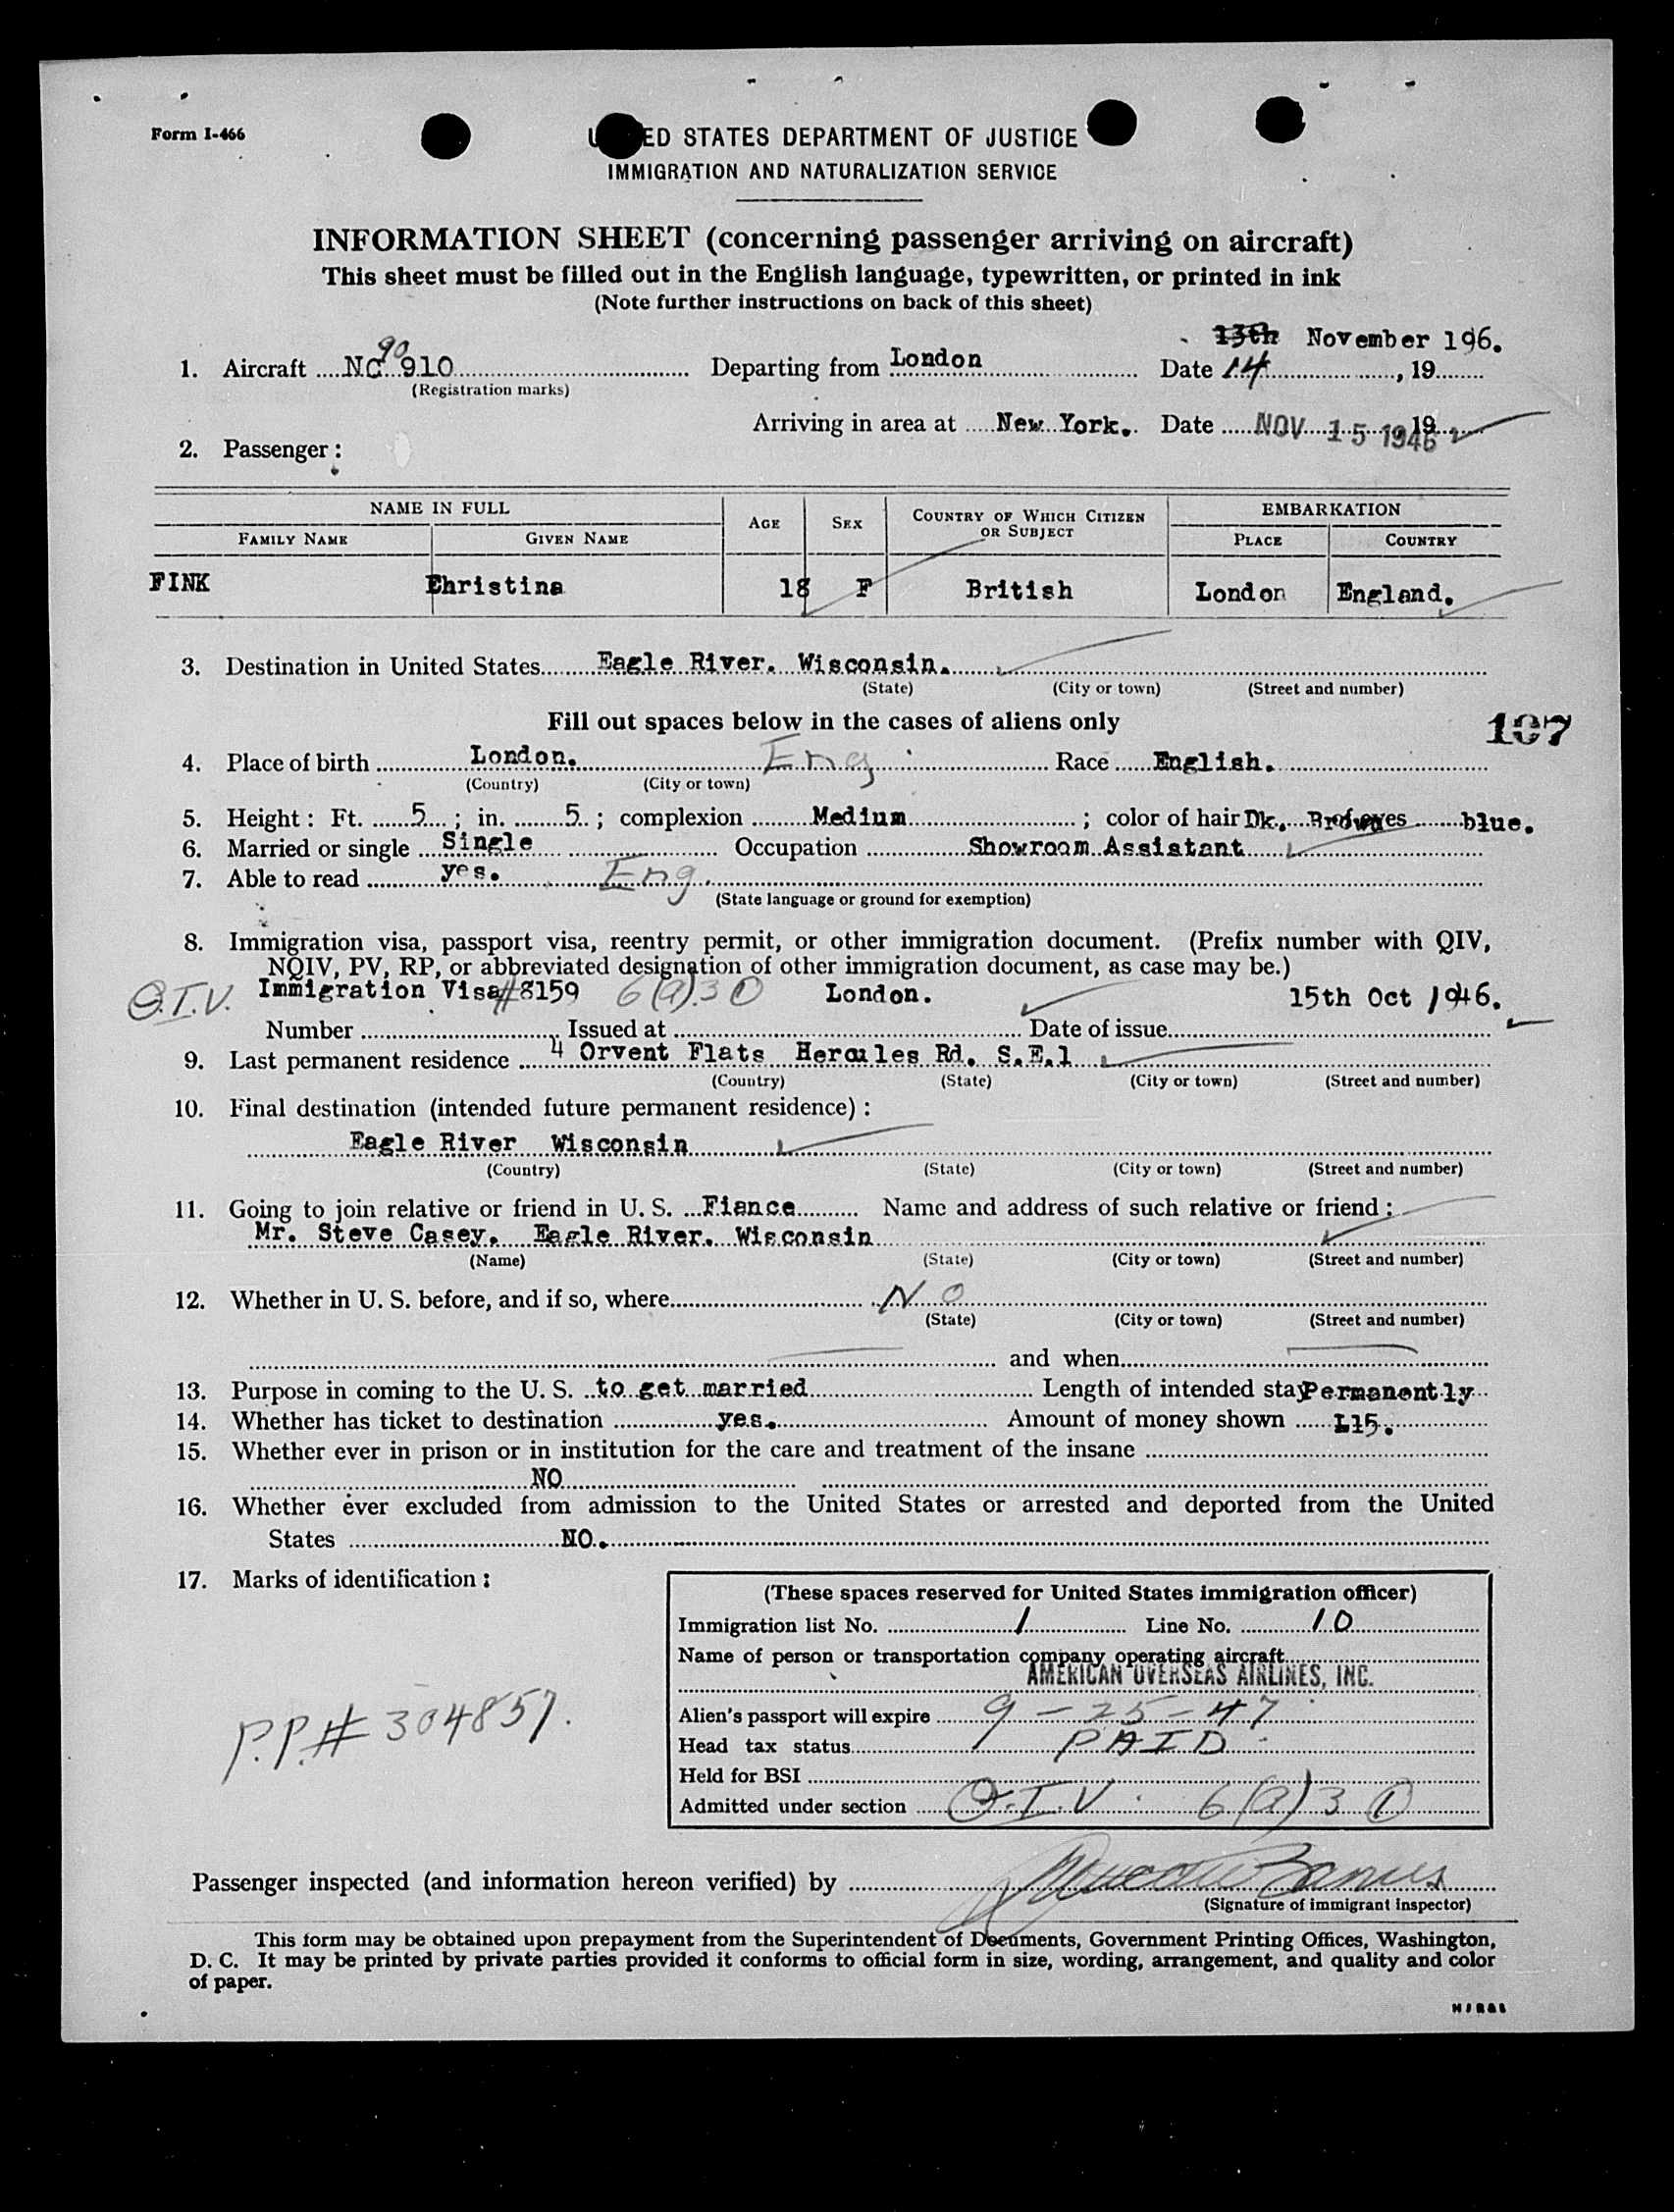 Form I-466
UNITED STATES DEPARTMENT OF JUSTICE
IMMIGRATION AND NATURALIZATION SERVICE
INFORMATION SHEET (concerning passenger arriving on aircraft)
This sheet must be filled out in the English language, typewritten, or printed in ink
(Note further instructions on back of this sheet)
13th November 196.
1. Aircraft NC 90910 Departing from London Date 14, 19
(Registration marks)
Arriving in area at New York. Date NOV 15 1946 19
2. Passenger:
NAME IN FULL AGE SEX COUNTRY OF WHICH CITIZEN OR SUBJECT EMBARKATION
FAMILY NAME GIVEN NAME PLACE COUNTRY
FINK Christina 18 F British London England.
3. Destination in United States Eagle River. Wisconsin.
(State) (City or town) (Street and number)
Fill out spaces below in the cases of aliens only
107
4. Place of birth London. Eng. Race English.
(Country) (City or town)
5. Height: Ft. 5; in. 5; complexion Medium; color of hair Dk. Brown eyes blue.
6. Married or single Single Occupation Showroom Assistant
7. Able to read yes. Eng.
(State language or ground for exemption)
8. Immigration visa, passport visa, reentry permit, or other immigration document. (Prefix number with QIV,
NQIV, PV, RP, or abbreviated designation of other immigration document, as case may be.)
Q.I.V. Immigration Visa #8159 6(a)3 ① London. 15th Oct 1946.
Number Issued at Date of issue
9. Last permanent residence 4 Orvent Flats Hercules Rd. S.E.1
(Country) (State) (City or town) (Street and number)
10. Final destination (intended future permanent residence):
Eagle River Wisconsin
(Country) (State) (City or town) (Street and number)
11. Going to join relative or friend in U. S. Fiance Name and address of such relative or friend:
Mr. Steve Casey. Eagle River. Wisconsin
(Name) (State) (City or town) (Street and number)
12. Whether in U. S. before, and if so, where NO
(State) (City or town) (Street and number)
and when
13. Purpose in coming to the U. S. to get married Length of intended stay Permanently
14. Whether has ticket to destination yes. Amount of money shown L15.
15. Whether ever in prison or in institution for the care and treatment of the insane
NO
16. Whether ever excluded from admission to the United States or arrested and deported from the United
States NO.
17. Marks of identification:
P.P.# 304857.
(These spaces reserved for United States immigration officer)
Immigration list No. 1 Line No. 10
Name of person or transportation company operating aircraft
AMERICAN OVERSEAS AIRLINES, INC.
Alien's passport will expire 9-25-47
Head tax status PAID
Held for BSI
Admitted under section Q.I.V. 6(a)3 ①
Passenger inspected (and information hereon verified) by
(Signature of immigrant inspector)
This form may be obtained upon prepayment from the Superintendent of Documents, Government Printing Offices, Washington,
D. C. It may be printed by private parties provided it conforms to official form in size, wording, arrangement, and quality and color
of paper.